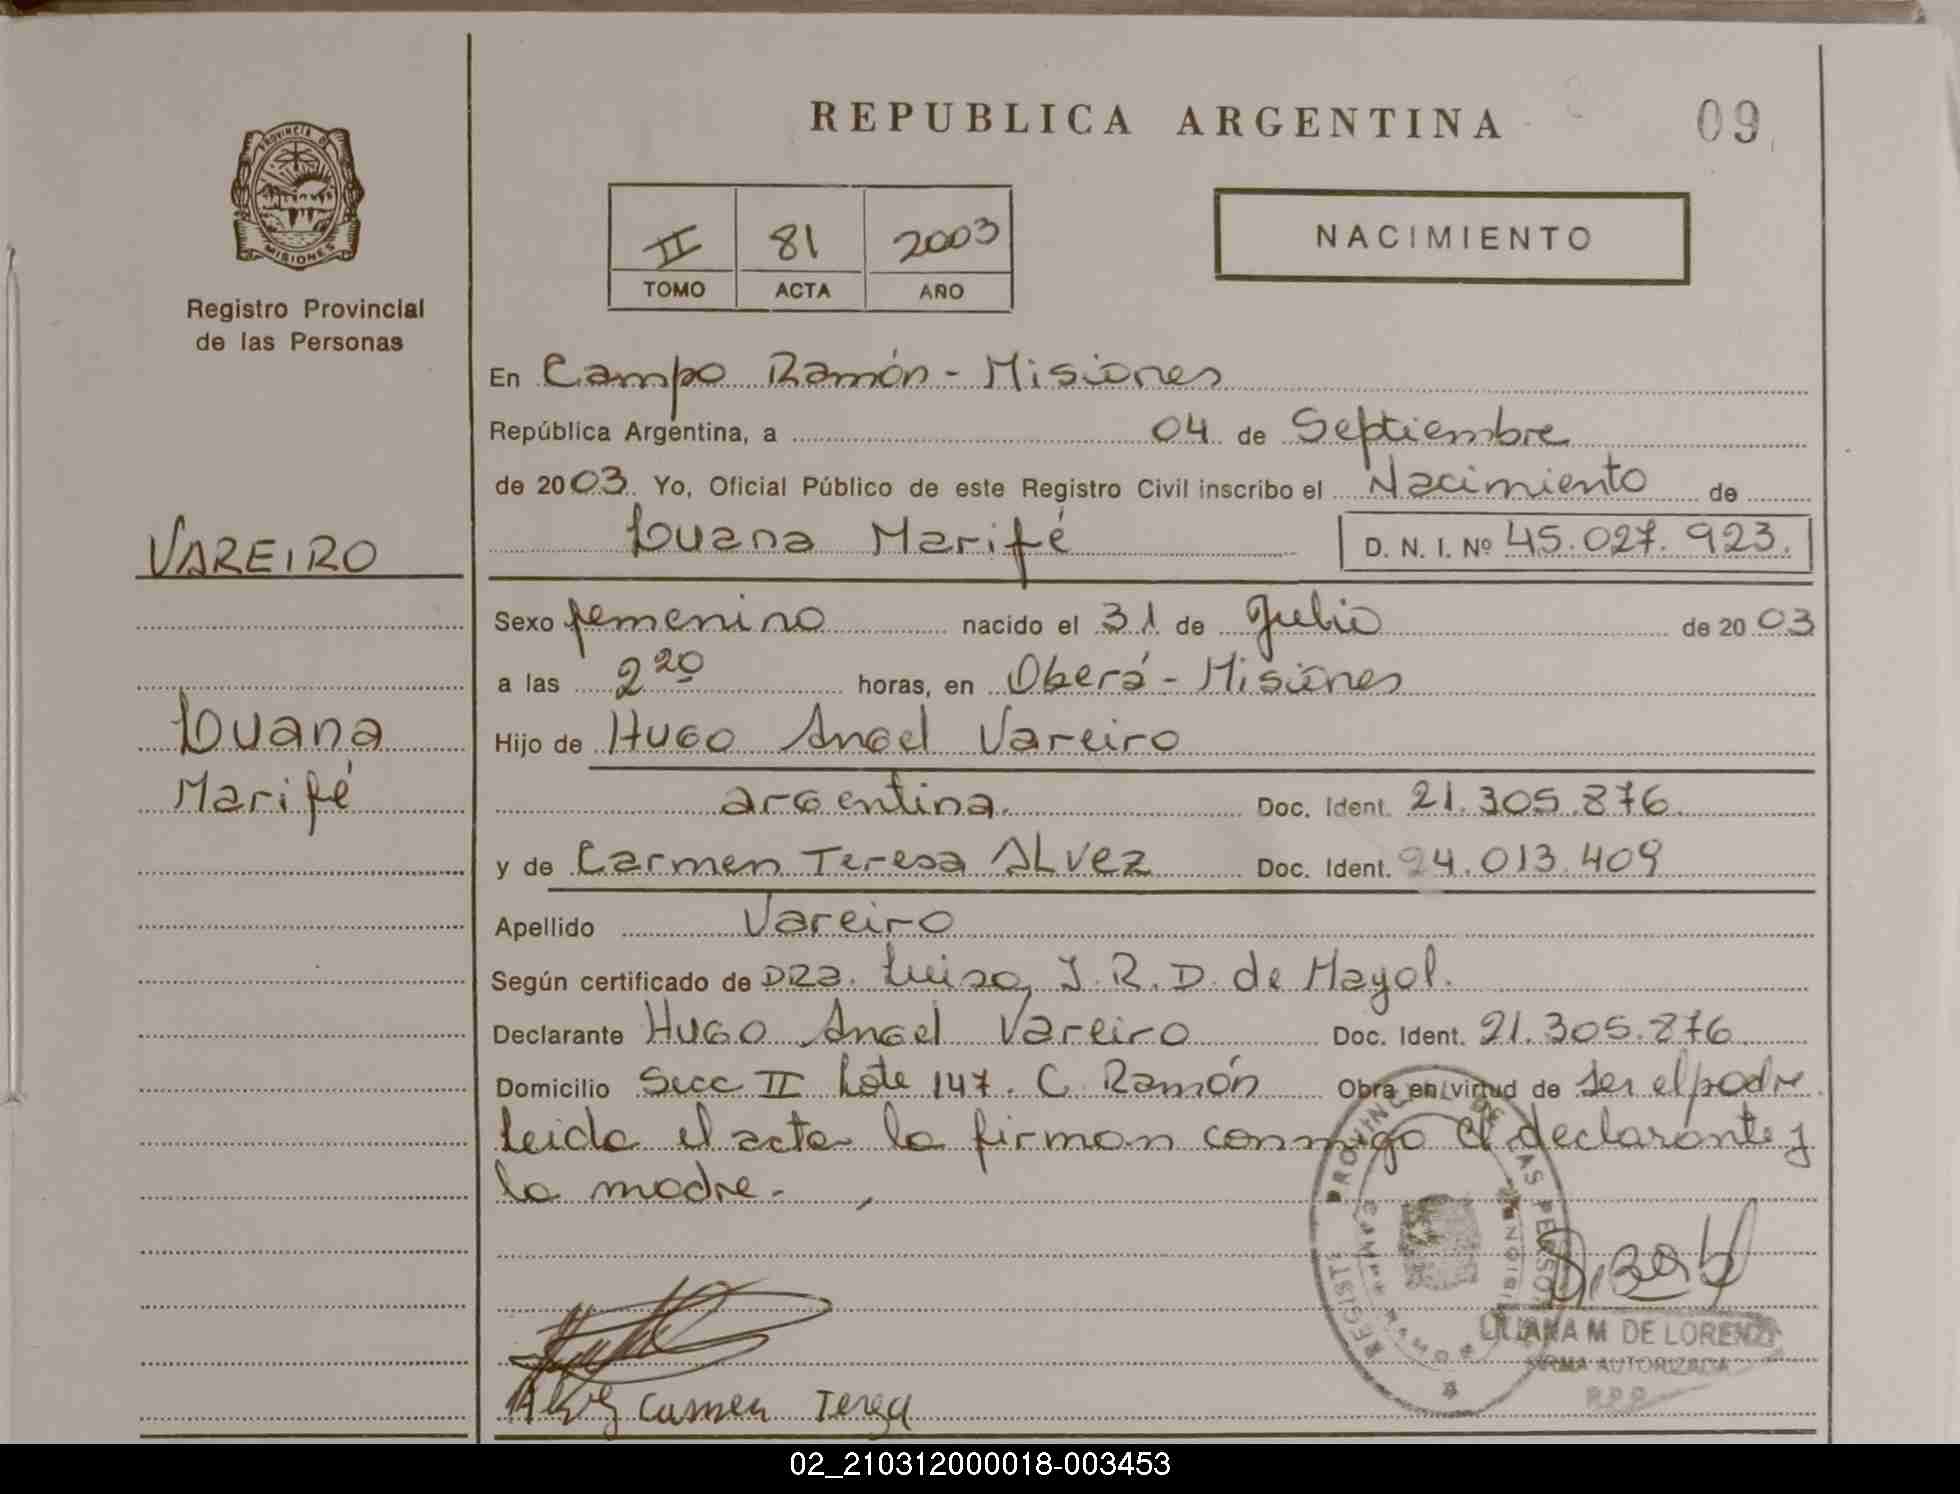 REPUBLICA ARGENTINA
09
PROVINCIA DE
MISIONES
Registro Provincial
de las Personas
II 81 2003
TOMO ACTA AÑO
NACIMIENTO
En Campo Ramón - Misiones
República Argentina, a 04 de Septiembre
de 2003. Yo, Oficial Público de este Registro Civil inscribo el Nacimiento de
Luana Marifé D. N. I. Nº 45.027.923.
VAREIRO
Luana
Marifé
Sexo femenino nacido el 31 de Julio de 2003
a las 2 20 horas, en Oberá - Misiones
Hijo de Hugo Angel Vareiro
argentina. Doc. Ident. 21.305.876
y de Carmen Teresa ALVEZ Doc. Ident. 94.013.409
Apellido Vareiro
Según certificado de DRa. Luisa J. R. D. de Mayol.
Declarante Hugo Angel Vareiro Doc. Ident. 21.305.876
Domicilio Secc II Lote 147. C. Ramón Obra en virtud de ser el padre
Leida el acta la firman conmigo el declarante y
la madre.-
REGISTR PROVINC DE LAS PERSO
CAMPO RAMON
LILIANA M. DE LORENZI
FIRMA AUTORIZADA
R.P.P.
Alvez Carmen Teresa
02_210312000018-003453